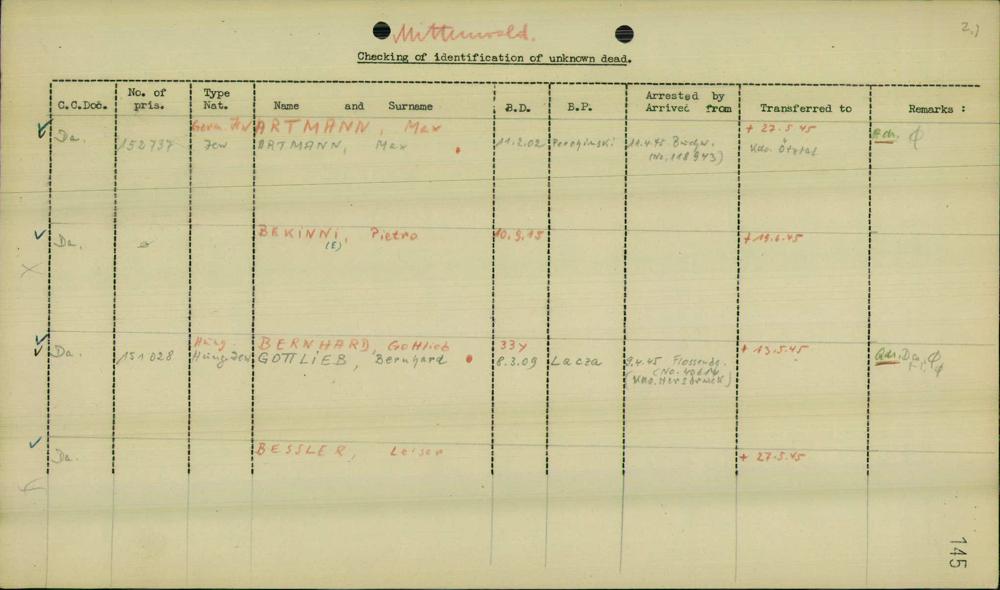 Mittenwald.
2.)
Checking of identification of unknown dead.
C.C.Doc. No. of pris. Type Nat. Name and Surname B.D. B.P. Arrested by Arrived from Transferred to Remarks :
Germ. Jew ARTMANN, Max + 27.5.45
Da. 152737 Jew ARTMANN, Max 11.2.02 11.4.45 Buchw. Kdo. Ötztal
(No. 118943)
Da. BEKINNI, Pietro 10.9.15 + 19.6.45
(E)
Hung. BERNHARD, Gottlieb 33y + 13.5.45
Da. 151028 Hung. Jew GOTTLIEB, Bernhard 8.3.09 Lacza 9.4.45 Flossenbg. Da.
(No. 40614
(Kdo. Hersbruck)
Da. BESSLER, Leiser + 27.5.45
145